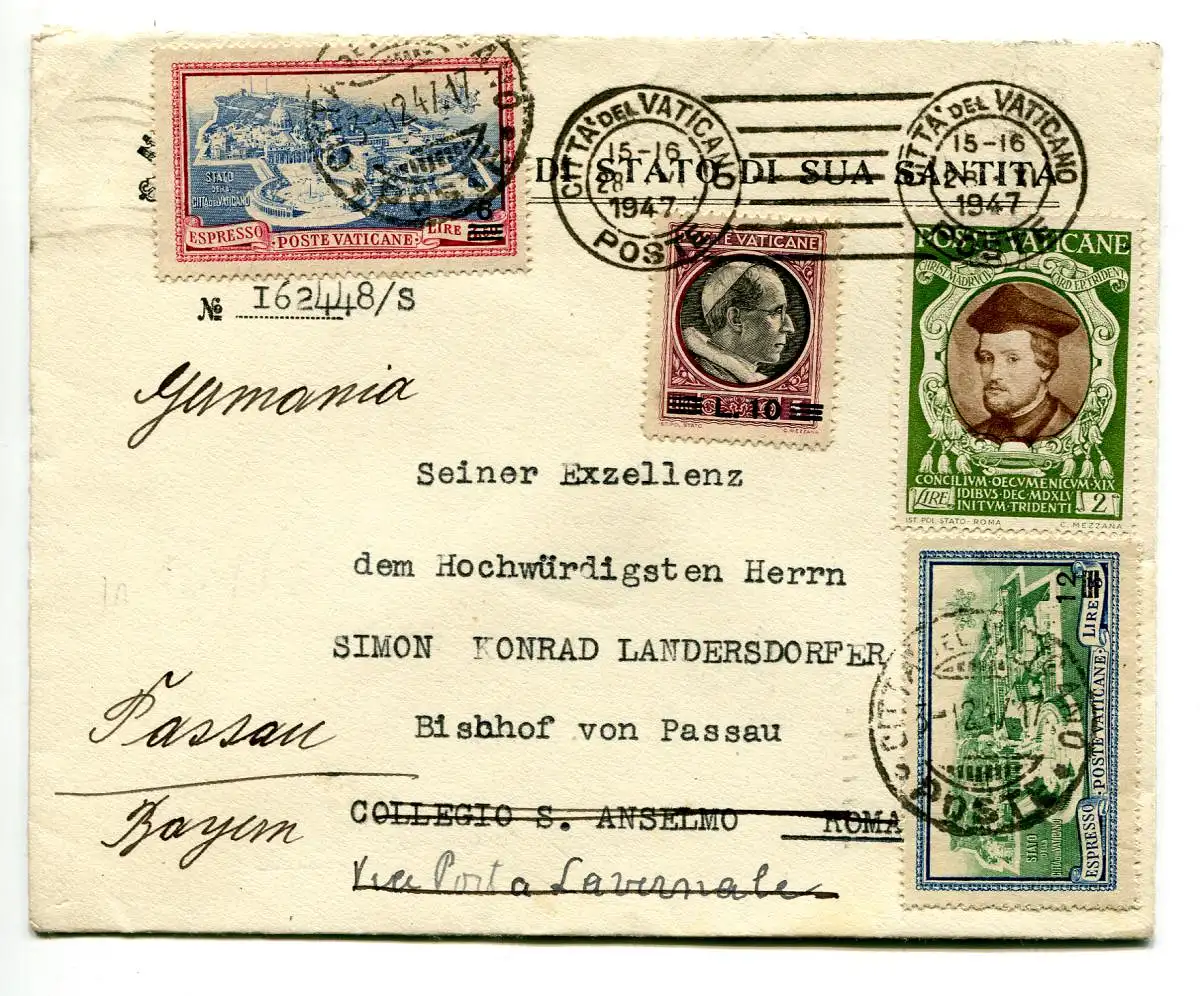 DI STATO DI SUA SANTITÀ
№ I62448/S
STATO
DELLA
CITTÀ DEL VATICANO
ESPRESSO · POSTE VATICANE · LIRE 6
CITTA' DEL VATICANO
15-16
1947
POSTE
CITTA' DEL VATICANO
15-16
1947
POSTE
POSTE VATICANE
L. 10
IST. POL. STATO C. MEZZANA
POSTE VATICANE
CHRIST. MADRVTID CARD. EP. TRIDENT.
CONCILIVM·OECVMENICVM·XIX
IDIBVS·DEC·MDXLV
INITVM·TRIDENTI
LIRE 2
IST. POL. STATO-ROMA C. MEZZANA
Germania
Seiner Exzellenz
dem Hochwürdigsten Herrn
SIMON KONRAD LANDERSDORFER
Passau
Bischof von Passau
Bayern
COLLEGIO S. ANSELMO ROMA
Via Porta Lavernale
ESPRESSO · POSTE VATICANE · LIRE 12
STATO
DELLA
CITTÀ DEL VATICANO
POSTE